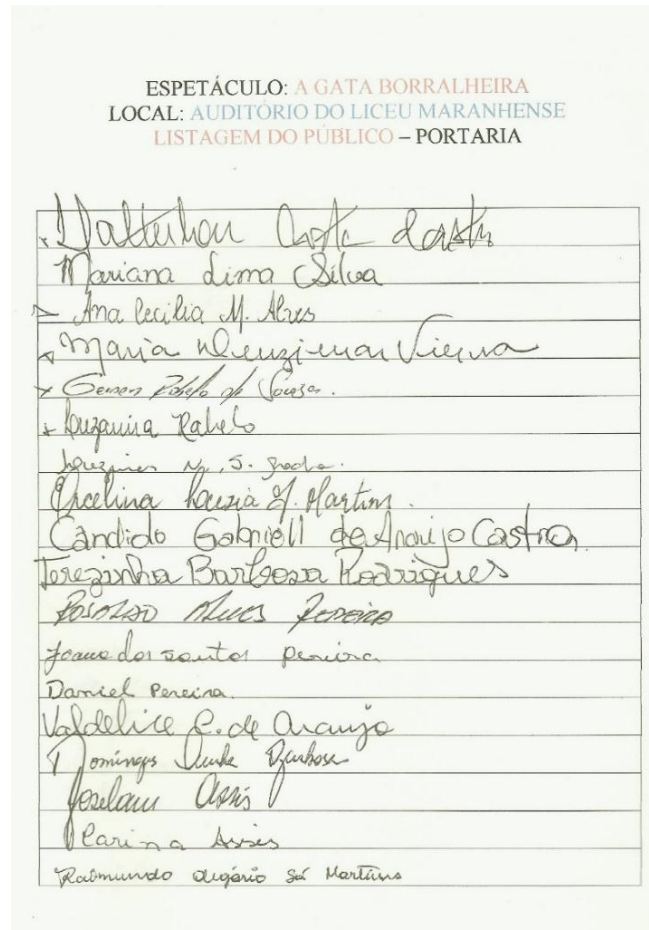 ESPETÁCULO: A GATA BORRALHEIRA
LOCAL: AUDITÓRIO DO LICEU MARANHENSE
LISTAGEM DO PÚBLICO – PORTARIA
Costa
Mariana Lima Silva
Ana Cecilia M. Alves
Maria Vieira
Gerson Rabelo de Souza.
Luzanira Rabelo
S.
Ercelina Louzia Martins.
Candido Gabriell de Araujo Castro
Terezinha Barbosa Rodrigues
Alves Pereira
Joana dos santos pereira
Daniel Pereira.
Valdelice C. de Araujo
Domingos Barbosa
Joselani Assis
Carina Assis
Raimundo Olegário Sá Martins